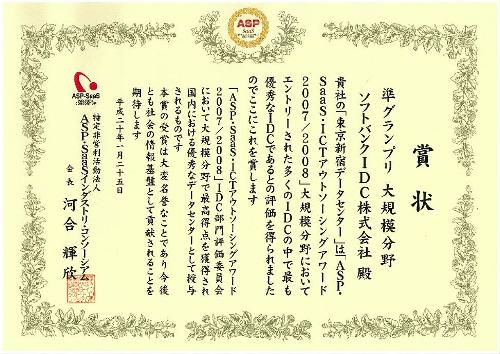 ASP
SaaS
賞状
準グランプリ 大規模分野
ソフトバンクIDC株式会社 殿
貴社の「東京新宿データセンター」は「ASP・
SaaS・ICTアウトソーシングアワード
2007/2008」大規模分野において
エントリーされた多くのIDCの中で最も
優秀なIDCであるとの評価を得られました
のでここにこれを賞します
「ASP・SaaS・ICTアウトソーシングアワード
2007/2008」IDC部門評価委員会
において大規模分野で最高得点を獲得され
国内における優秀なデータセンターとして授与
されるものです
本賞の受賞は大変名誉なことであり今後
とも社会の情報基盤として貢献されることを
期待します
平成二十年一月二十五日
ASP-SaaS
特定非営利活動法人
ASP・SaaSインダストリ・コンソーシアム
会長 河合輝欣